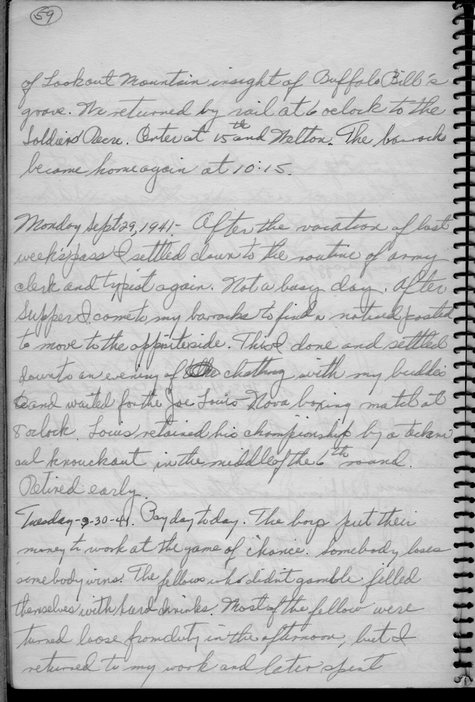 59
of Lookout Mountain insight of Buffalo Bill's
grave. We returned by rail at 6 oclock to the
Soldiers Recre. Center at 15th and Welton. The barracks
became home again at 10:15.
Monday Sept 29, 1941 - After the vacation of last
weeks pass I settled down to the routine of army
clerk and typist again. Not a busy day. After
supper I come to my barracks to find a notice posted
to move to the opposite side. This I done and settled
down to an evening of chatting with my buddies
and waited for the Joe Louis Nova boxing match at
8 oclock. Louis retained his championship by a techni
cal knouckout in the middle of the 6th round.
Retired early.
Tuesday - 9-30-41. Pay day today. The boys put their
money to work at the game of chance. Somebody loses
somebody wins. The fellows who didn't gamble filled
themselves with hard drinks. Most of the fellow were
turned loose from duty in the afternoon, but I
returned to my work and later spent